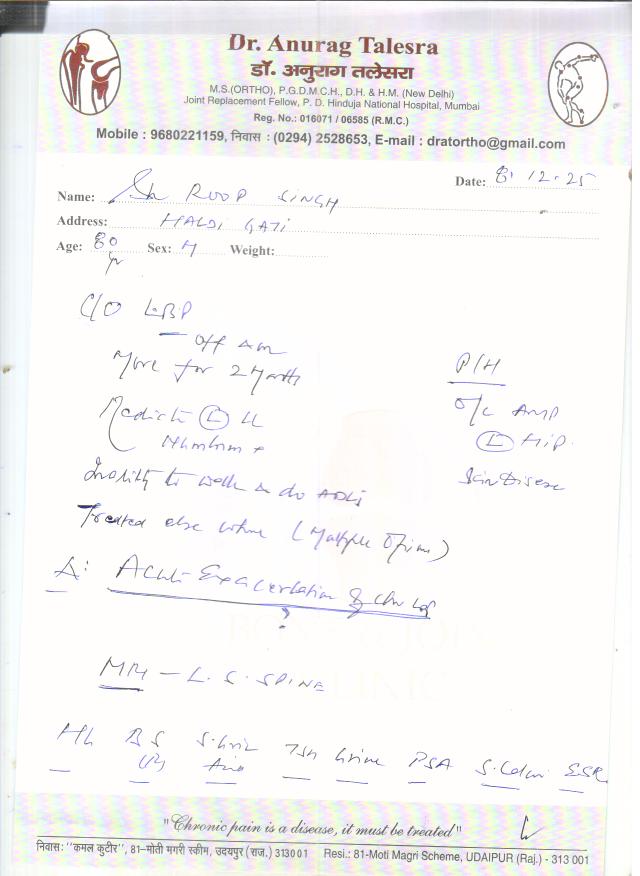 Dr. Anurag Talesra
डॉ. अनुराग तलेसरा
M.S.(ORTHO), P.G.D.M.C.H., D.H. & H.M. (New Delhi)
Joint Replacement Fellow, P. D. Hinduja National Hospital, Mumbai
Reg. No.: 016071 / 06585 (R.M.C.)
Mobile : 9680221159, निवास : (0294) 2528653, E-mail : dratortho@gmail.com
Date: 8.12.25
Name: Sh ROOP SINGH
Address: HALDI GATI
Age: 80 yr Sex: M Weight:
C/O LBP
- Off &
More for 2 Month
L LL
P/H
O/C AMP
L HIP
Skin Disease
Inability to walk & do ADLs
Treated else where (Multiple )
Δ: Acute Exacerbation of
?
MRI - L.S. SPINE
Hb BS (R) S. Uric Acid TSH Urine PSA ESR
"Chronic pain is a disease, it must be treated"
निवास: "कमल कुटीर", 81-मोती मगरी स्कीम, उदयपुर (राज.) 313001 Resi.: 81-Moti Magri Scheme, UDAIPUR (Raj.) - 313 001